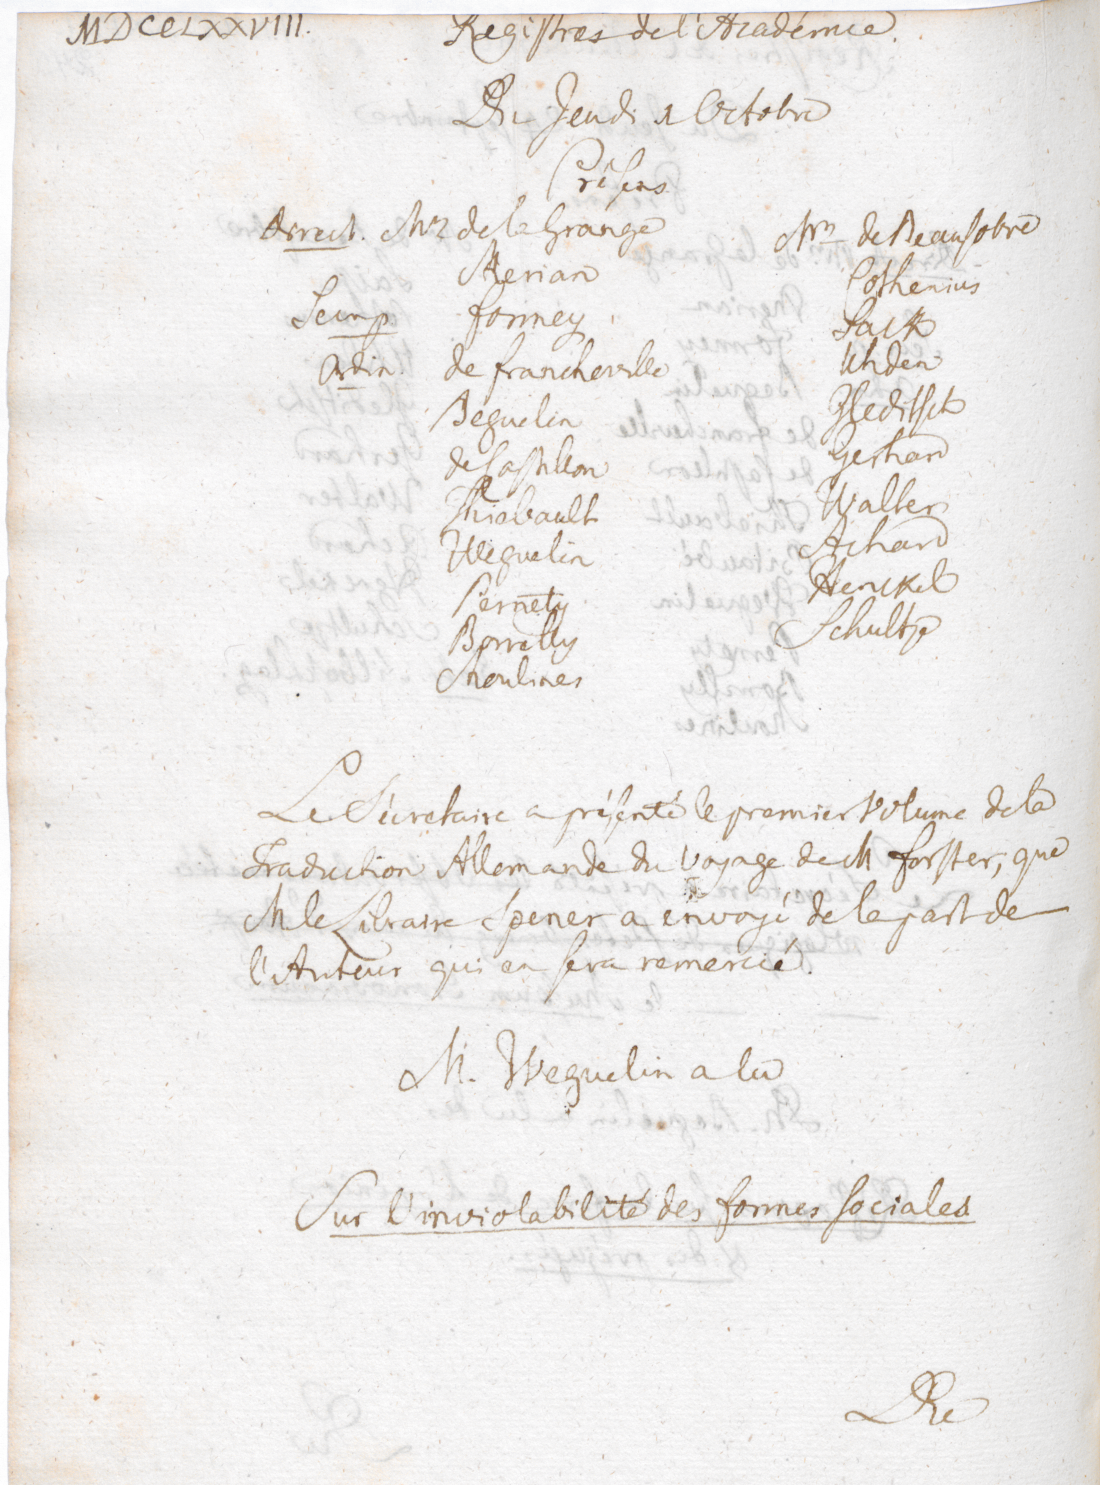 MDCCLXXVIII.
Registres de l'Académie.
Du Jeudi 1 Octobre
Présens
Direct. Mrs de la Grange
Merian
Secr. p. formey
Ordin. de francheville
Beguelin
de Castillon
Thiebault
Weguelin
Pernety
Borrelly
Moulines
Mrs de Beausobre
Cothenius
Sack
Uhden
Gleditsch
Gerhard
Walter
Achard
Henckel
Schultze
Le Sécretaire a présenté le premier Volume de la
Traduction Allemande du Voyage de M forster, que
M le Libraire Spener a envoyé de la part de
l'Auteur qui en sera remercié.
M. Weguelin a lu
Sur l'inviolabilité des formes sociales